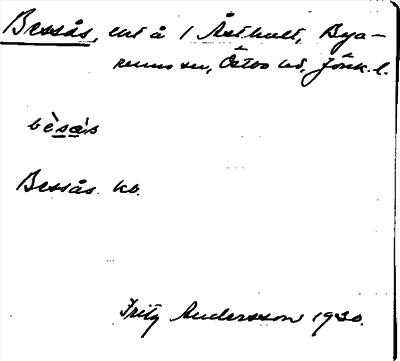 Bessås, ent å 1 Åsthult, Bya-
rums sn, Östbo hd, Jönk. l.
bèsàs
Bessås kb.
Fritz Andersson 1930.